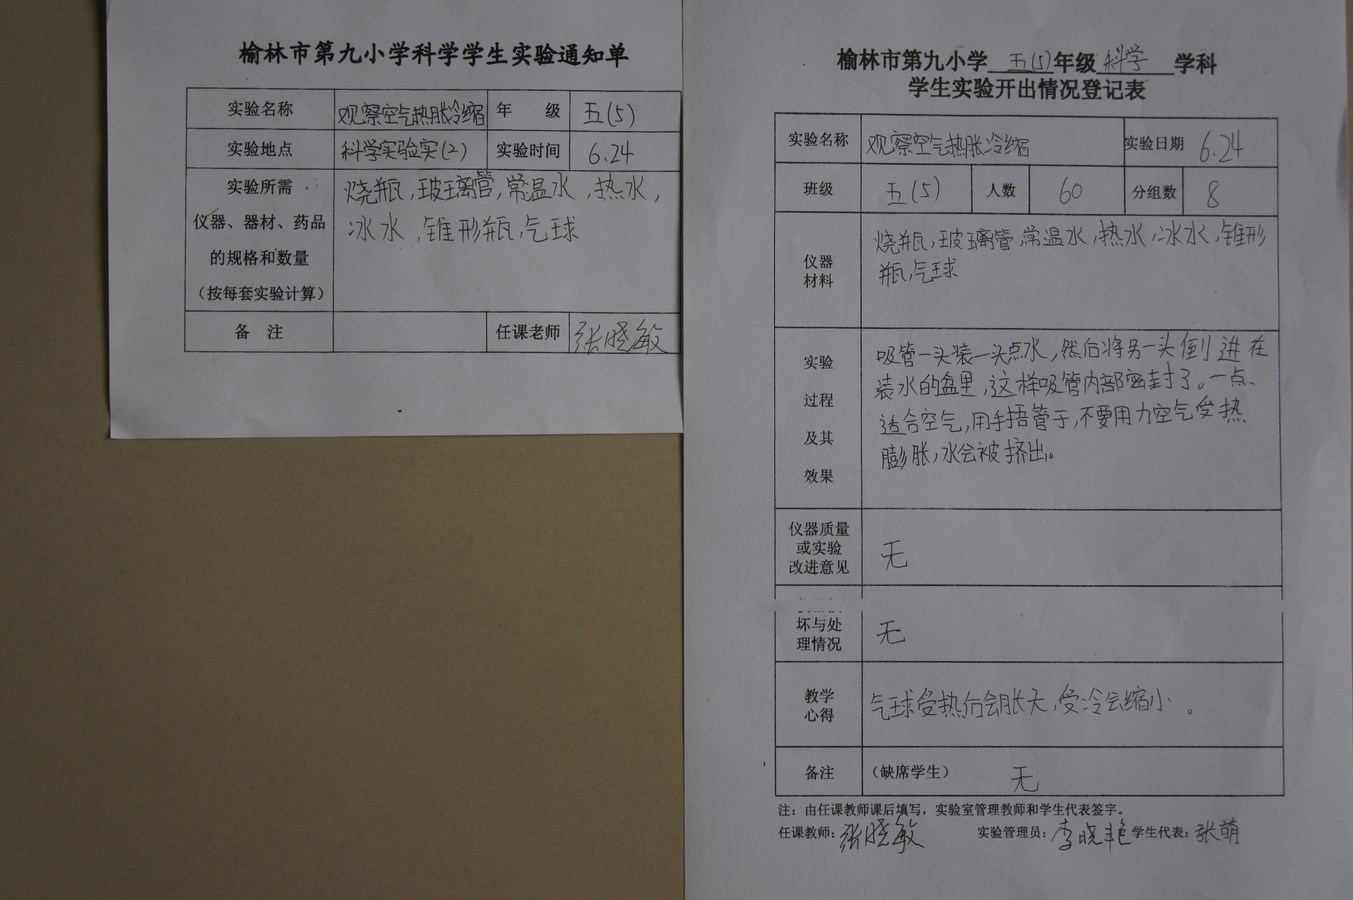 榆林市第九小学科学学生实验通知单
实验名称 观察空气热胀冷缩 年 级 五(5)
实验地点 科学实验实(2) 实验时间 6.24
实验所需
仪器、器材、药品
的规格和数量
(按每套实验计算)
烧瓶,玻璃管,常温水,热水,
冰水,锥形瓶,气球
备 注 任课老师 张晓敏
榆林市第九小学 五(5) 年级 科学 学科
学生实验开出情况登记表
实验名称 观察空气热胀冷缩 实验日期 6.24
班级 五(5) 人数 60 分组数 8
仪器
材料
烧瓶,玻璃管,常温水,热水,冰水,锥形
瓶,气球
实验
过程
及其
效果
吸管一头装一头点水,然后将另一头倒进在
装水的盆里,这样吸管内部密封了。一点、
适合空气,用手捂管于,不要用力空气受热
膨胀,水会被挤出。
仪器质量
或实验
改进意见
无
坏与处
理情况
无
教学
心得
气球受热后会胀大,受冷会缩小。
备注 (缺席学生) 无
注:由任课教师课后填写,实验室管理教师和学生代表签字。
任课教师:张晓敏 实验管理员:李晓艳 学生代表:张萌